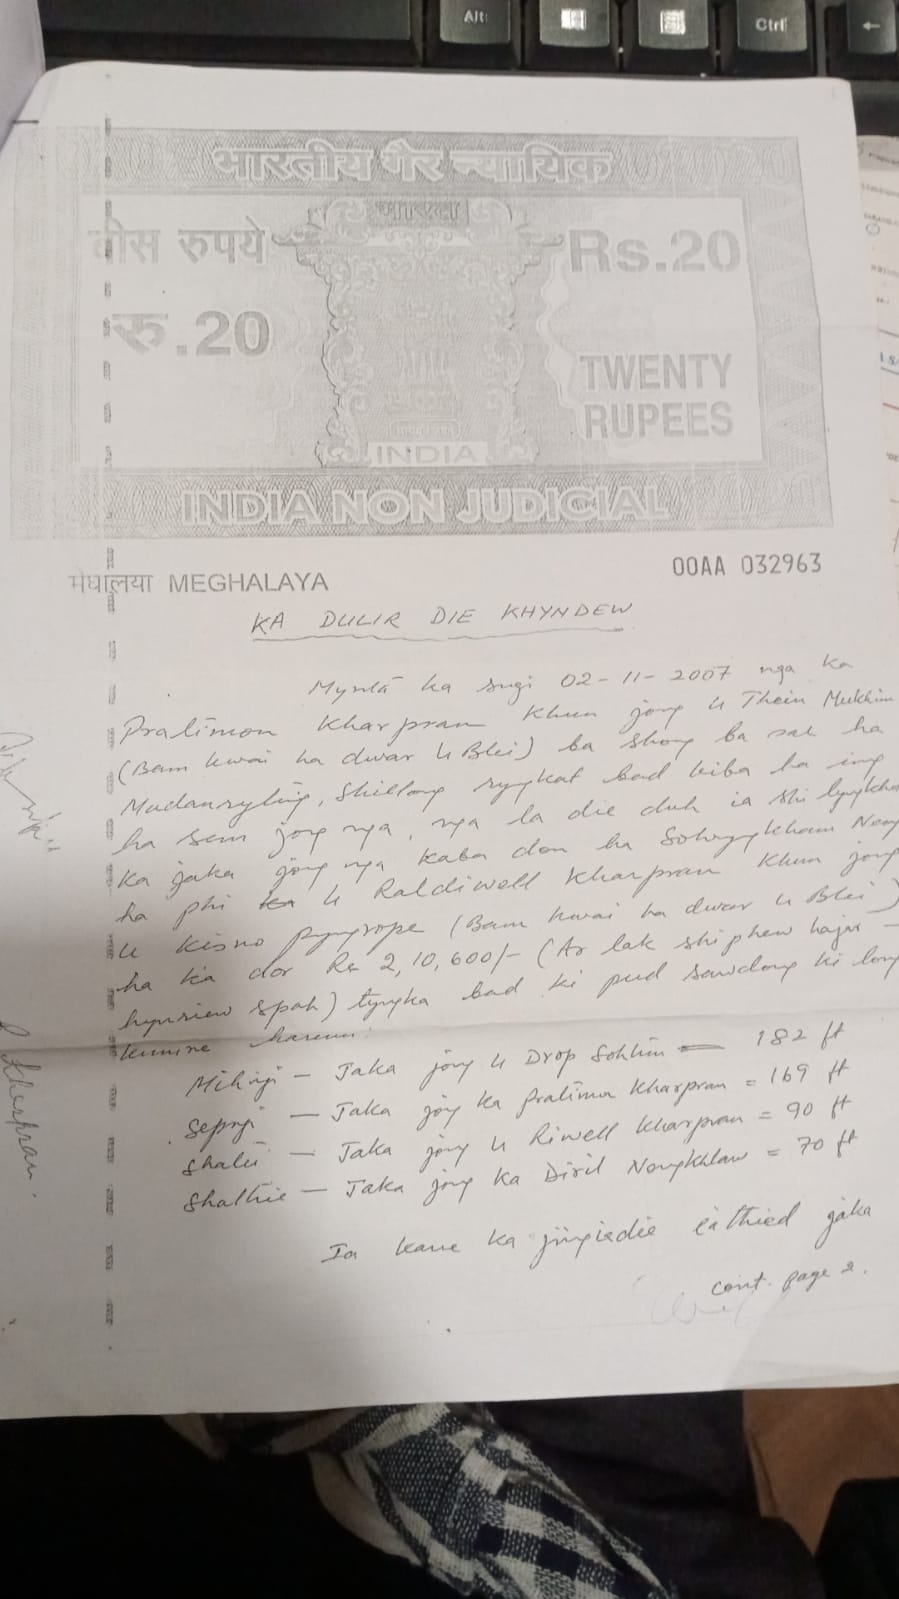 Alt
Ctrl
भारतीय गैर न्यायिक
भारत
बीस रुपये
Rs.20
रु.20
TWENTY
RUPEES
INDIA
INDIA NON JUDICIAL
मेघालया MEGHALAYA
00AA 032963
KA DULIR DIE KHYNDEW
Mynta ka sngi 02-11-2007 nga ka
Pralimon Kharpran khun jong u Thein Mukhim
(Bam kwai ha dwar u Blei) ba shong ba sah ha
Madanryting, Shillong ryngkat bad kiba ha ing
ha sem jong nga, nga la die duh ia shi lyngkha
ka jaka jong nga kaba don ha Sohryngkham Nong
ha phi u Raldiwell Kharpran khun jong
u Kisno Pyngrope (Bam kwai ha dwar u Blei)
ha ka dor Rs 2,10,600/- (Ar lak shi phew hajar -
hynriew spah) tyngka bad ki pud sawdong ki long
kumne harum:
Mihngi - Jaka jong u Drop Sohlim = 182 ft
Sepngi - Jaka jong ka Pralimon Kharpran = 169 ft
Shatei - Jaka jong u Riwell Kharpran = 90 ft
Shathie - Jaka jong ka Diril Nongkhlaw = 70 ft
Ia kane ka jingiadie iathied jaka
cont. page 2.
Kharpran.